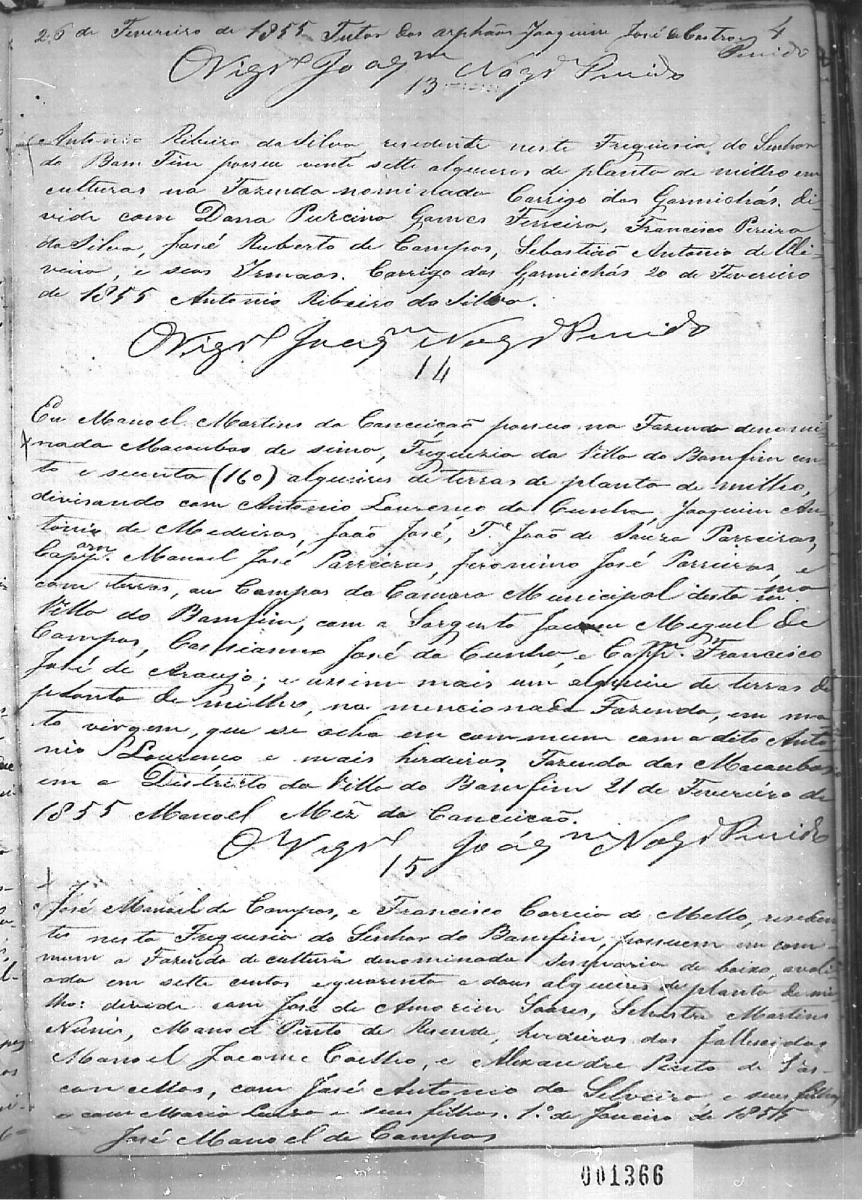 26 de Fevereiro de 1855 Tutor dos orphãos Joaquim José de Castro 4
Penido
O Vigrº Joaqm Nogrª Penido
13
Antonio Ribeiro da Silva, resedente neste Freguesia do Senhor
do Bom Fim possue vente sette alqueires de planta de milho em
culturas na Fazenda nominada Corrigo das Gormichás, di-
vide com Dona Gomes Ferreira, Francisco Pereira
da Silva, José Ruberto de Campos, Sebastião Antonio de Oli-
veira, e seos Irmaos. Corrigo das Gormichás 20 de Fevereiro
de 1855 Antonio Ribeiro da Silva.
O Vigrº Joaqm Nogrª Penido
14
Eu Manoel Martins da Conceicão possuo na Fazenda denomi-
nada Macaubas de sima, Freguezia da Villa do Bomfim cen-
to e secenta (160) alqueires de terras de planta de milho,
divisando com Antonio Lourenco da Cunha, Joaquim An-
tonio de Medeiros, João José, Tᵉ João de Souza Parreiras,
Capᵃᵐ Manoel José Parreiras, Jeronimo José Parreiras, e
com terras, ou Campos da Camara Municipal desta mᵐᵃ
Villa do Bomfim, com o Sargento Jacome Miguel de
Campos, Cassianno José da Cunha, e Capᵐ Francisco
José de Araujo; e assim mais um alqueire de terras de
planta de milho, na mencionada Fazenda, em ma-
to virgem, que se acha em commum com o dito Anto-
nio Lourenco e mais herdeiros Fazenda das Macaubas
em o Districto da Villa do Bomfim 21 de Fevereiro de
1855 Manoel Miz da Conceicão.
O Vigrº Joáqm Nogrª Penido
15
José Manoel de Campos, e Francisco Correia de Mello, reseden-
tes nesta Freguesia do Senhor do Bomfim, possuem em com-
mum a Fazenda de cultura denominada Sesmaria de baixo, avali-
ada em sette centos e quarenta e dous alqueires de planta de mi-
lho: divide com José de Amorim Soares, Silvestre Martins
Nunis, Manoel Pinto de Resende, herdeiros dos fallecidos
Manoel Jacome Coelho, e Alexandre Pinto de Vas-
concellos, com José Antonio da Silveira e seus filhos,
e com Maria e seus filhos. 1º de Janeiro de 1855
José Manoel de Campos
001366